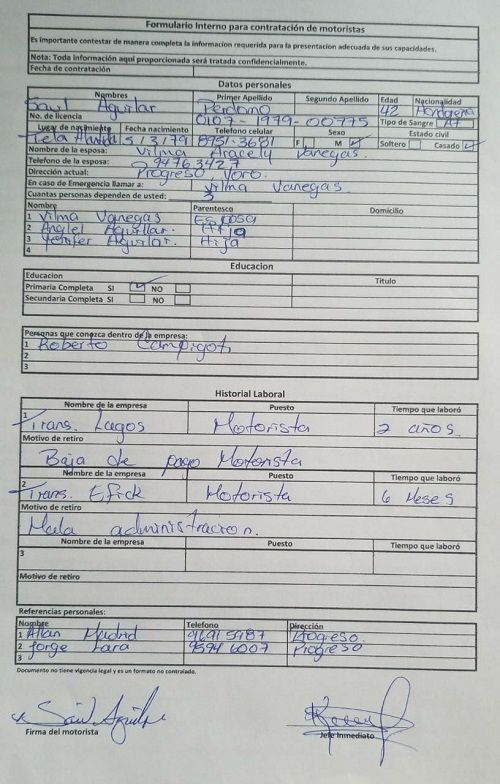 Formulario Interno para contratación de motoristas
Es importante contestar de manera completa la informacion requerida para la presentacion adecuada de sus capacidades.
Nota: Toda información aquí proporcionada será tratada confidencialmente.
Fecha de contratación
Datos personales
Nombres Primer Apellido Segundo Apellido Edad Nacionalidad
Saul Aguilar Perdomo 42 Hondureña
No. de licencia 0107-1979-00775 Tipo de Sangre A+
Lugar de nacimiento Fecha nacimiento Telefono celular Sexo Estado civil
Tela 5/3/79 8951-3681 F M Soltero Casado
Nombre de la esposa: Vilma Aracely Vanegas.
Telefono de la esposa: 94763427
Dirección actual: Progreso Yoro.
En caso de Emergencia llamar a: Vilma Vanegas
Cuantas personas dependen de usted: 3
Nombre Parentesco Domicilio
1 Vilma Vanegas Esposa
2 Anglel Aguillar. Hija
3 Yenifer Aguilar. Hija
4
Educacion
Educacion Titulo
Primaria Completa SI NO
Secundaria Completa SI NO
Personas que conozca dentro de la empresa:
1 Roberto Campigoti
2
3
Historial Laboral
Nombre de la empresa Puesto Tiempo que laboró
1 Trans. Lagos Motorista 2 años
Motivo de retiro
Baja de pago Motorista
Nombre de la empresa Puesto Tiempo que laboró
2 Trans. Efick Motorista 6 Meses
Motivo de retiro
Mala administracion.
Nombre de la empresa Puesto Tiempo que laboró
3
Motivo de retiro
Referencias personales:
Nombre Telefono Dirección
1 Allan Madrid 96915987 Progreso.
2 Jorge Lara 95946007 Progreso
3
Documento no tiene vigencia legal y es un formato no controlado.
Saul Aguilar
Firma del motorista Jefe Inmediato